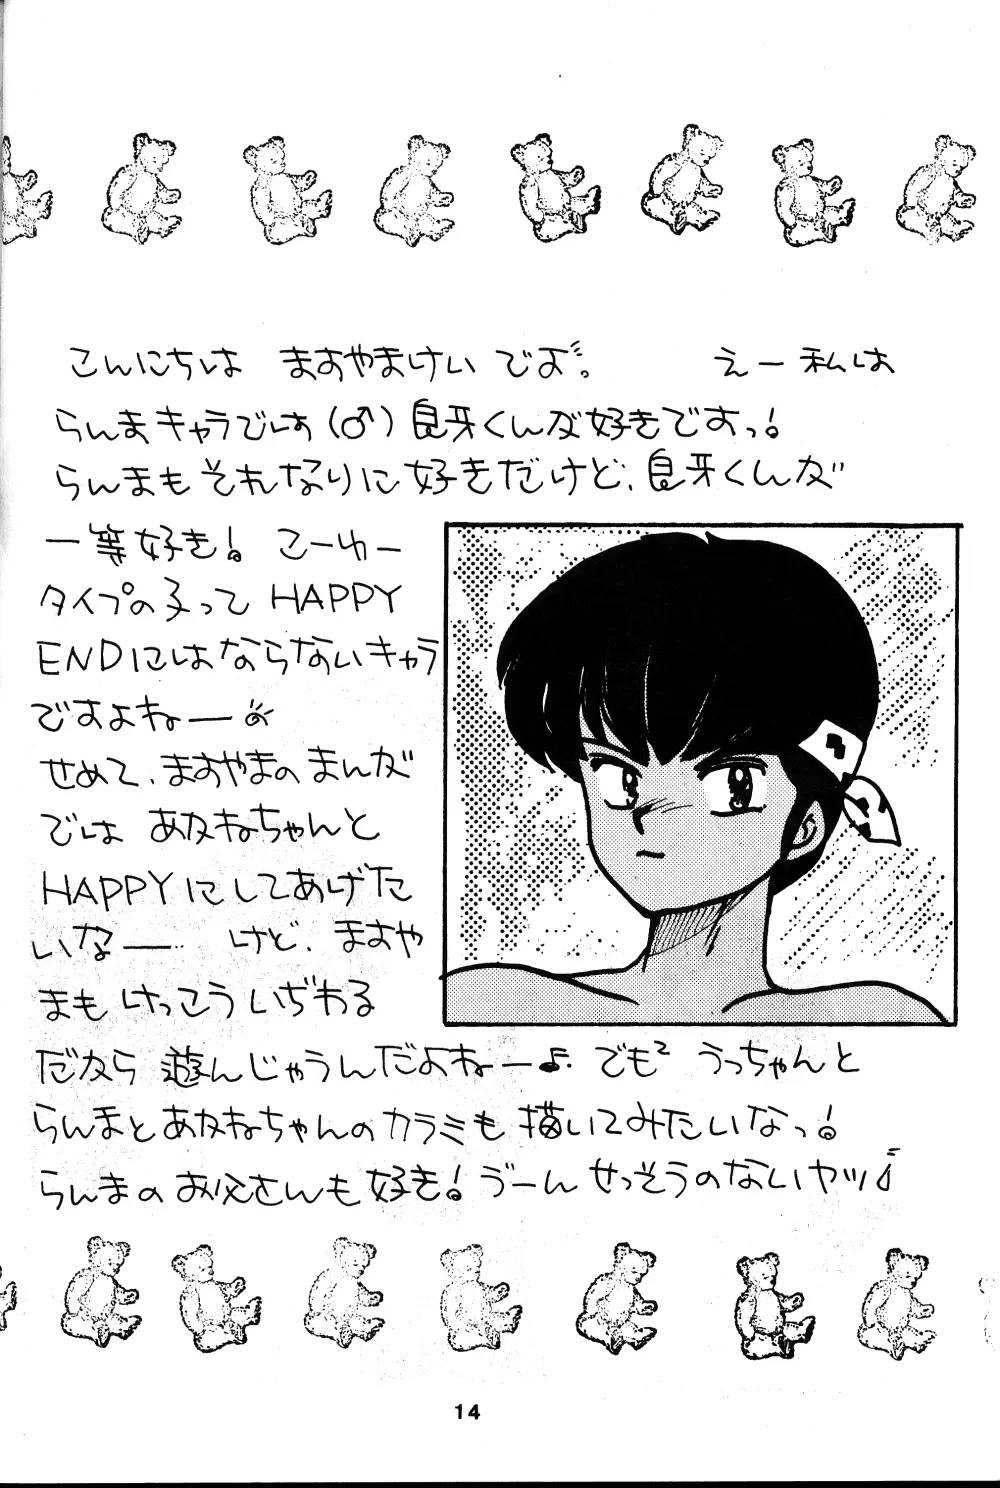 こんにちは ますやまけい でよ。 えー 私は
らんまキャラでは(♂)良牙くんが好きですっ!
らんまもそれなりに好きだけど、良牙くんが
一等好き! こーゆー
タイプの子って HAPPY
ENDにはならないキャラ
ですよねー
せめて、ますやまのまんが
では あかねちゃんと
HAPPYにしてあげた
いなー けど、ますや
まも けっこういぢわる
だから 遊んじゃうんだよねー♪ でも² うっちゃんと
らんまとあかねちゃんのカラミも描いてみたいなっ!
らんまのお父さんも好き! ゔーん せっそうのないヤツ♪
14